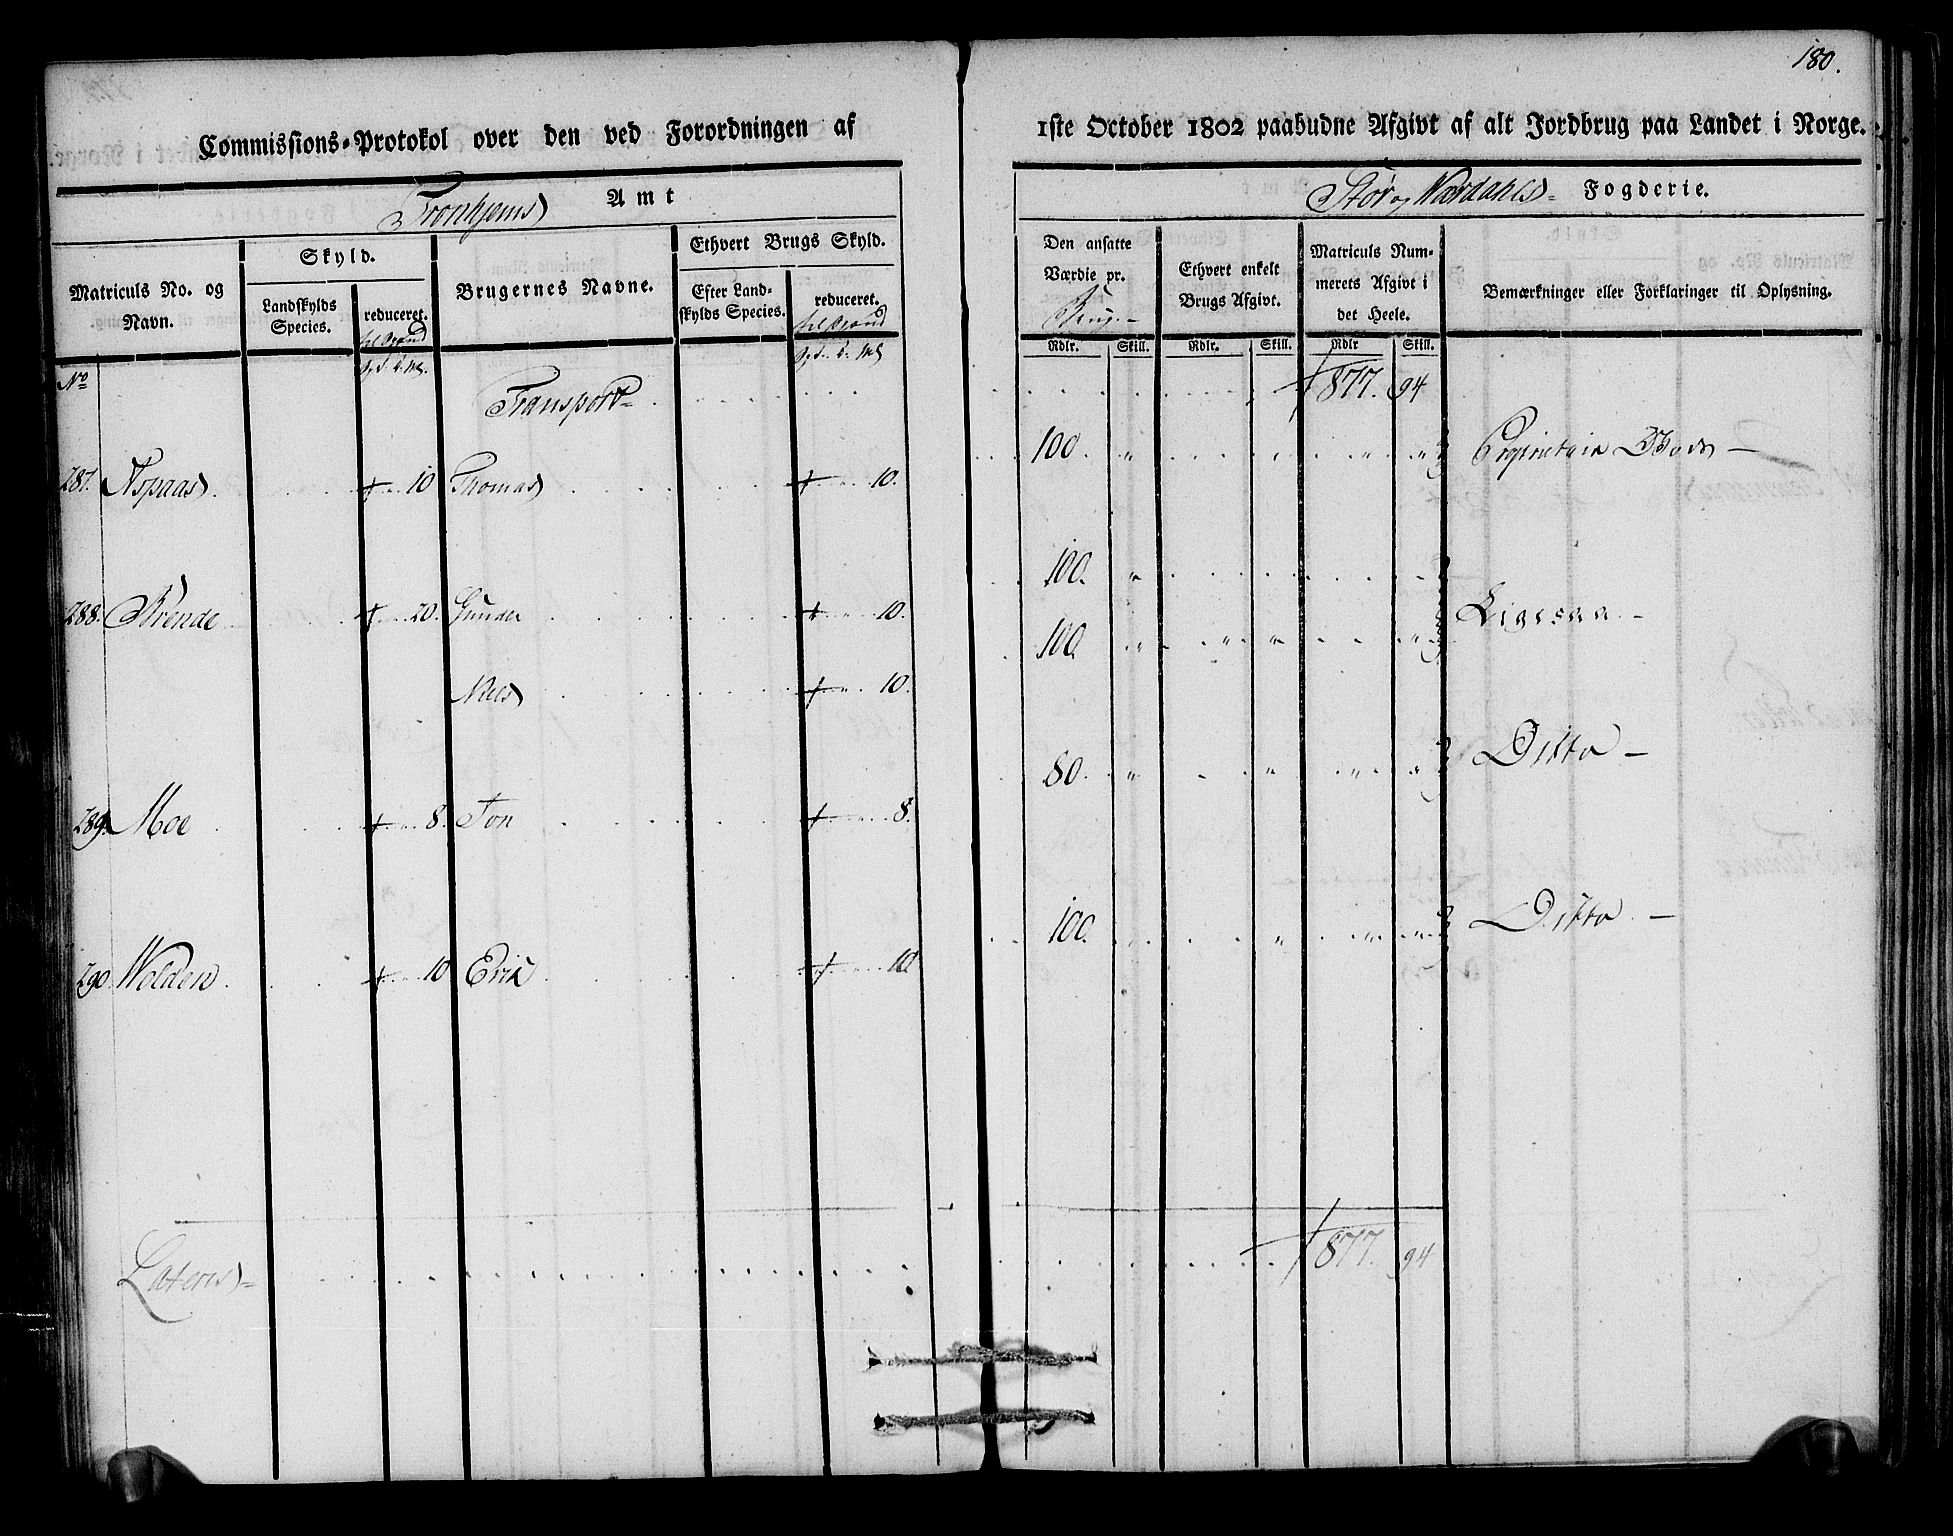 180.
Commissions-Protokol over den ved Forordningen af 1ste October 1802 paabudne Afgivt af alt Jordbrug paa Landet i Norge.
Tronhjems Amt
Stør og Værdahls Fogderie.
Matriculs No. og Navn.
Skyld.
Landskylds Species.
reduceret.
Brugernes Navne.
Ethvert Brugs Skyld.
Efter Landskylds Species.
reduceret.
Den ansatte Værdie pr.
Ethvert enkelt Brugs Afgivt.
Matriculs Nummerets Afgivt i det Heele.
Bemærkninger eller Forklaringer til Oplysning.
Rdlr. Skill. Rdlr. Skill. Rdlr Skill.
No
Transport 877. 94
287. Aspaas 10 Thomas 10. 100.
288. Brende 20. Gunder 10. 100. Ligesaa
Niels 10. 100.
289. Moe 8. Jon 8. 80. Ditto
290. Wolden 10 Erik 10 100. Ditto
Lateris 877. 94